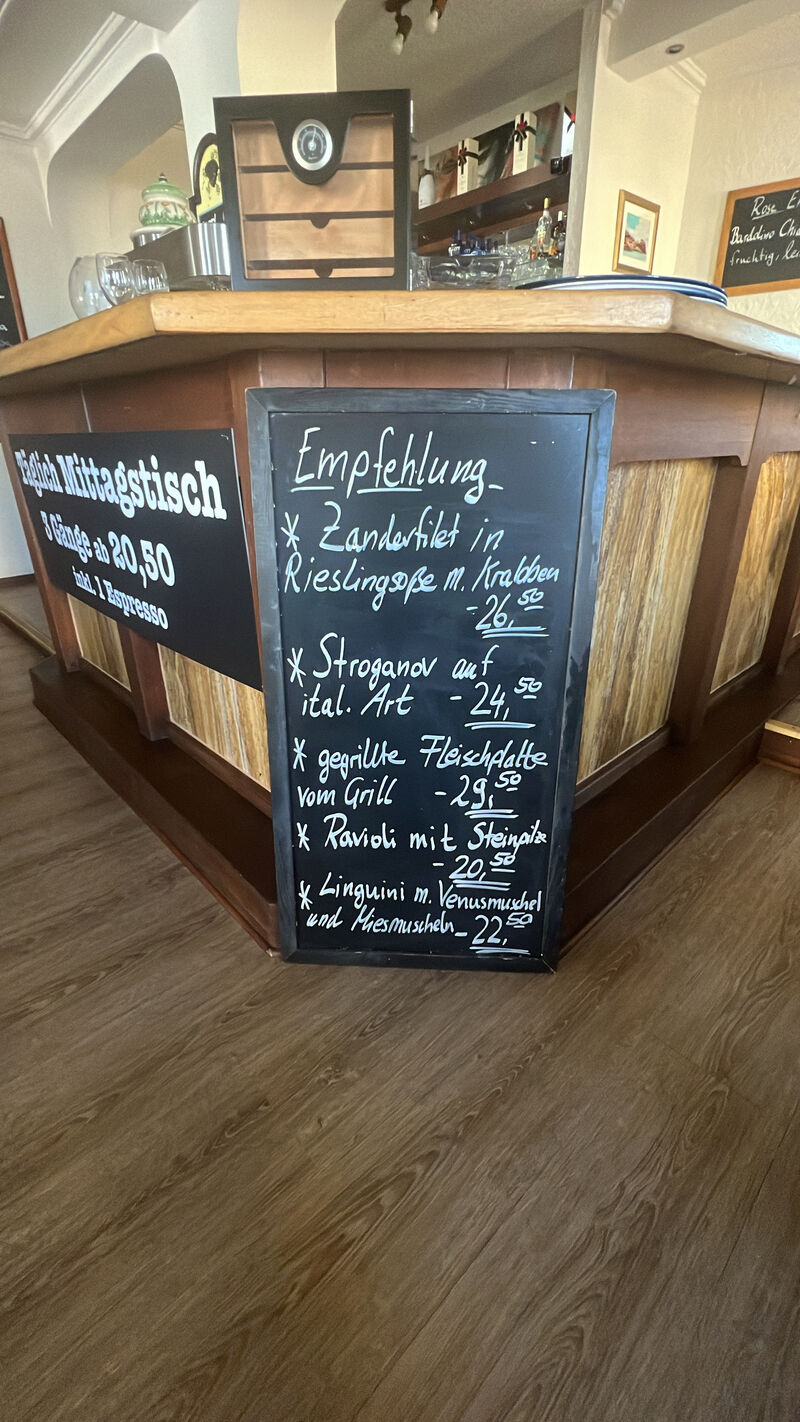 Empfehlung
* Zanderfilet in
Rieslingsoße m. Krabben
- 26,50
* Stroganov auf
ital. Art - 24,50
* gegrillte Fleischplatte
vom Grill - 29,50
* Ravioli mit Steinpilze
- 20,50
* Linguini m. Venusmuschel
und Miesmuscheln - 22,50
Täglich Mittagstisch
3 Gänge ab 20,50
inkl. 1 Espresso
Rose
fruchtig,